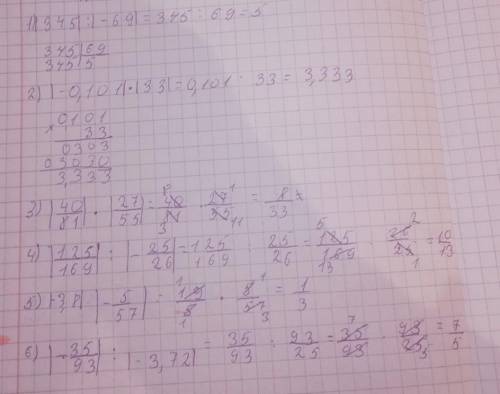 1) |345| : |-69| = 345 : 69 = 5
345 | 69
345 | 5
2) |-0,101| · |33| = 0,101 · 33 = 3,333
× 0101
33
0303
03030
3,333
3) |40/81| · |27/55| = 40/81 · 27/55 = 8/33
4) |125/169| : |-25/26| = 125/169 : 25/26 = 125/169 · 26/25 = 10/13
5) |-3,8| · |-5/57| = 19/5 · 5/57 = 1/3
6) |-35/93| : |-3,72| = 35/93 : 93/25 = 35/93 · 93/25 = 7/5